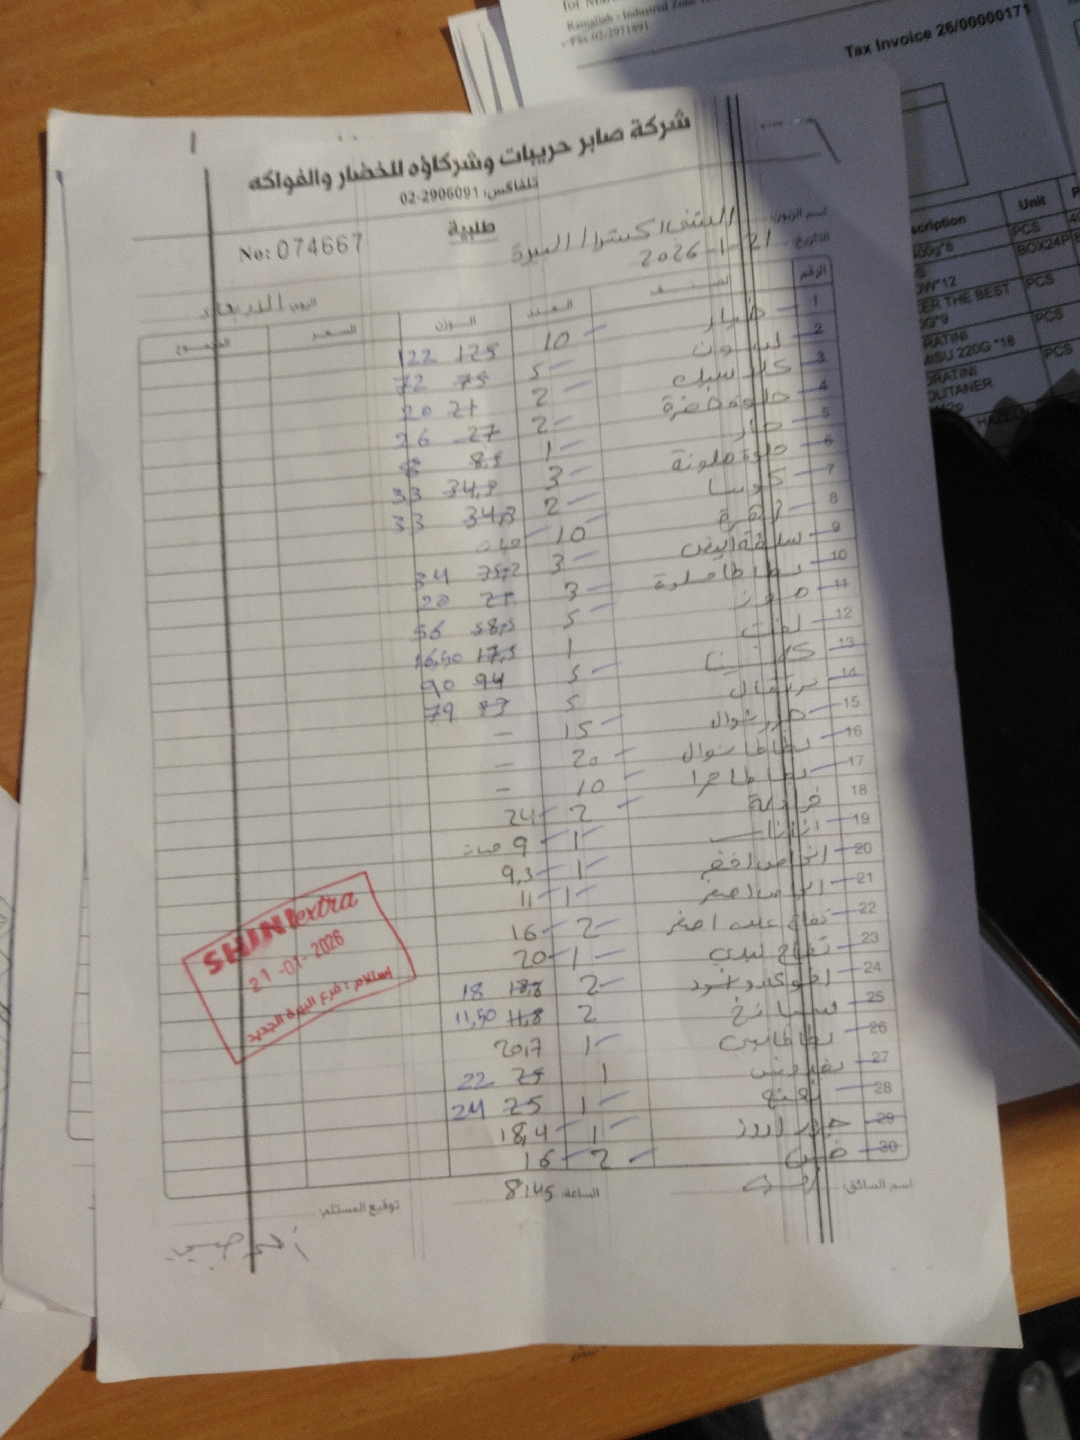 Ramallah - Industrial Zone
Fax 02-2971891
Tax Invoice 26/00000171
Unit
PCS
BOX24P
PCS
PCS
PCS
شركة صابر حريبات وشركاؤه للخضار والفواكه
تلفاكس: 02-2906091
طلبية
No: 074667
اسم الزبون: الشني اكسترا / البيرة
التاريخ: 21-1-2026
اليوم: الاربعاء
الرقم الصنف العدد الوزن السعر المجموع
1 خيار 10 125 122
2 ليمون 5 75 72
3 2 21 20
4 حلوة خضرة 2 27 26
5 1 8,5 8
6 حلوة ملونة 3 34,9 33
7 كوسا 2 34,8 33
8 زهرة 10
9 3 34
10 بطاطا حلوة 3 21 20
11 موز 5 58,5 56
12 لفت 1 17,5 16,50
13 كلمنتينا 5 94 90
14 برتقال 5 79
15 شوال 15 -
16 بطاطا شوال 20 -
17 بطاطا حمرا 10 -
18 فراولة 2 24
19 اناناس 1 9 حبات
20 اجاص اخضر 1 9,3
21 اجاص اصفر 1 11
22 تفاح علب اصفر 2 16
23 تفاح ليدي 1 20
24 افوكادو 2 18,8 18
25 سبانخ 2 11,8 11,50
26 بطاطا بيبي 1 20,7
27 بقدونس 1 25 22
28 نعنع 1 25 24
29 1 18,4
30 خس 2 16
اسم السائق: الساعة: 8:45 توقيع المستلم:
SHINI extra
21-01-2026
استلام: فرع البيرة الجديد